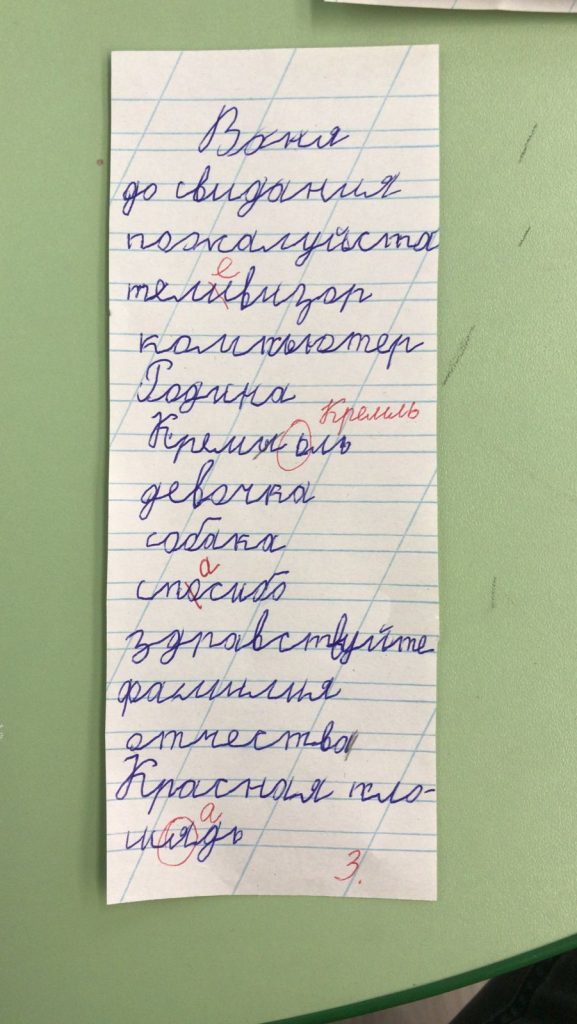 Ваня
до свидания
пожалуйста
е
теливизор
компьютер
Родина
Кремль
Креми оль
девочка
собака
а
спосибо
здравствуйте
фамилия
отчества
Красная пло-
а
щядь
3.